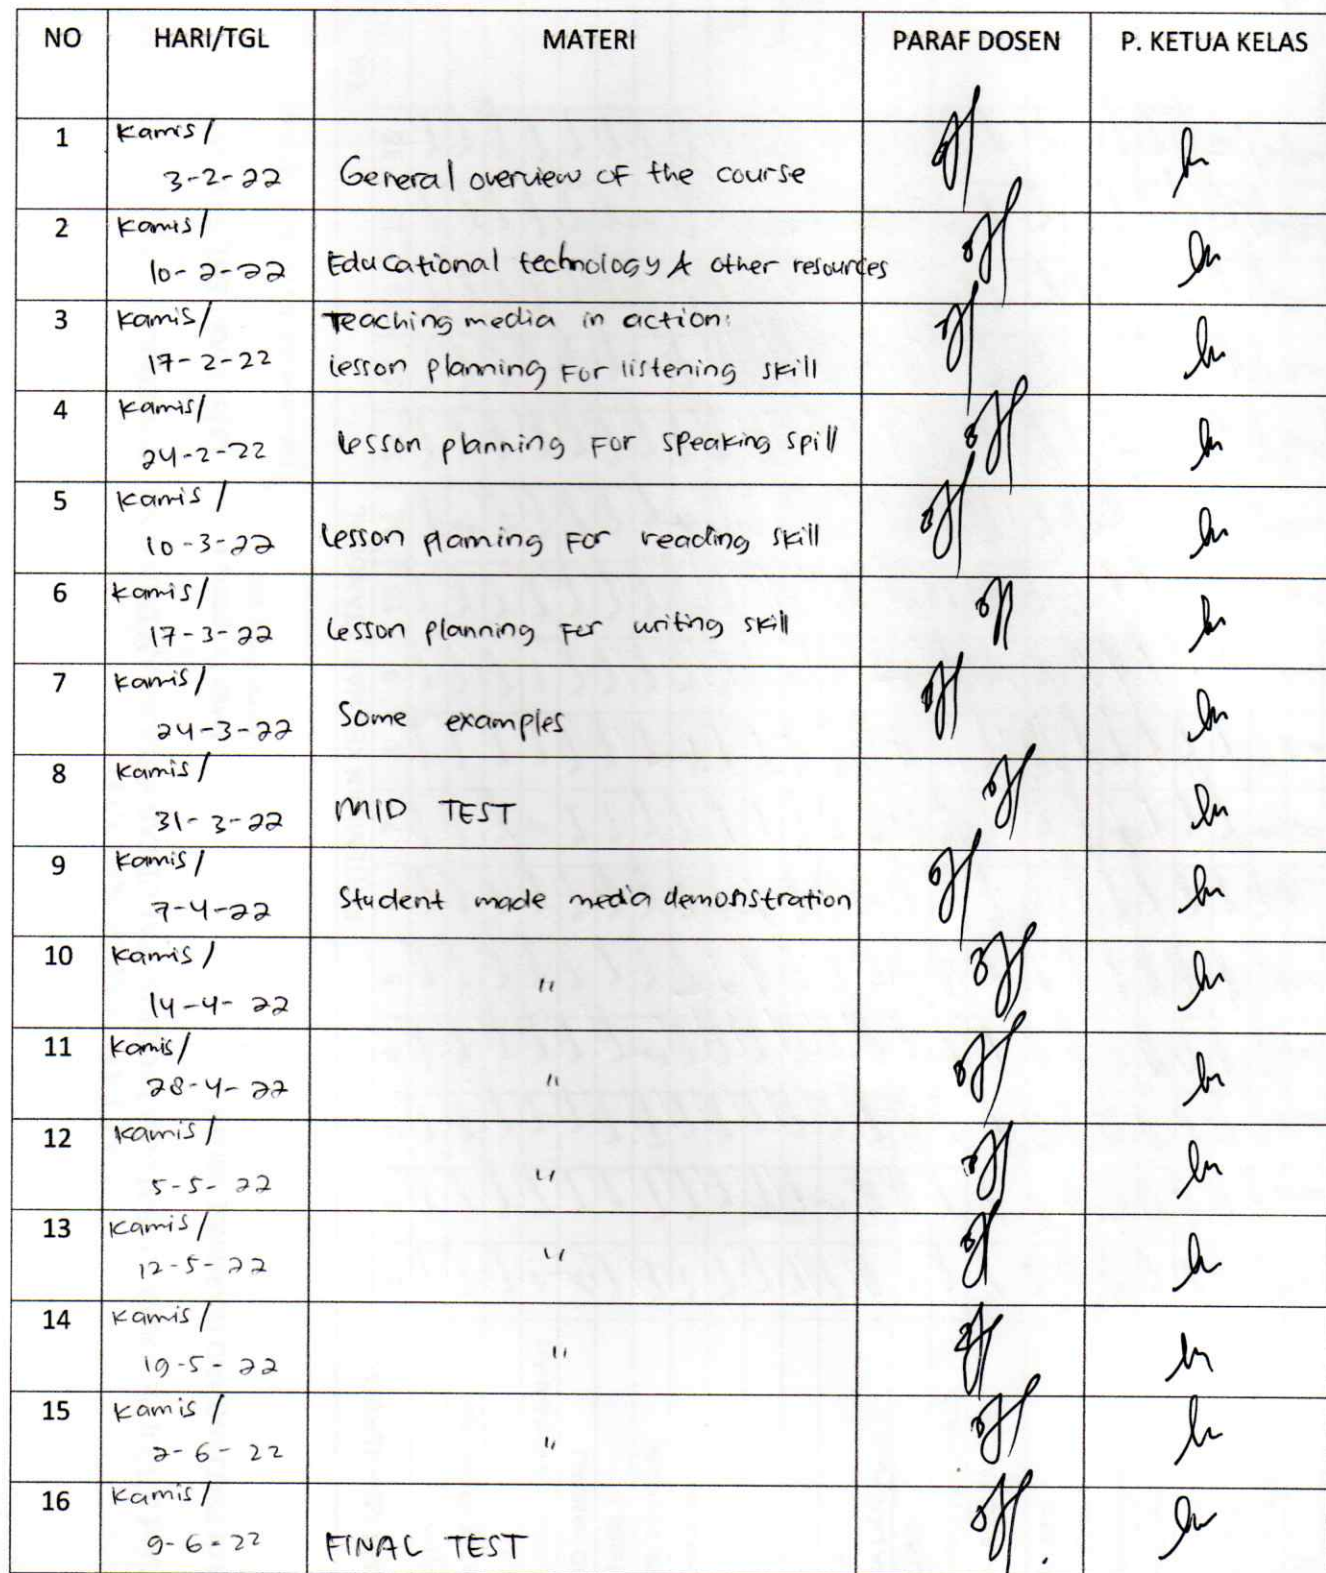 NO HARI/TGL MATERI PARAF DOSEN P. KETUA KELAS
1 Kamis/
3-2-22 General overview of the course
2 Kamis/
10-2-22 Educational technology & other resources
3 Kamis/ Teaching media in action:
17-2-22 lesson planning For listening skill
4 Kamis/
24-2-22 lesson planning For speaking spill
5 Kamis/
10-3-22 lesson planning For reading skill
6 Kamis/
17-3-22 lesson planning For writing skill
7 Kamis/
24-3-22 Some examples
8 Kamis/
31-3-22 MID TEST
9 Kamis/
7-4-22 Student made media demonstration
10 Kamis/
14-4-22 "
11 Kamis/
28-4-22 "
12 Kamis/
5-5-22 "
13 Kamis/
12-5-22 "
14 Kamis/
19-5-22 "
15 Kamis/
2-6-22 "
16 Kamis/
9-6-22 FINAL TEST